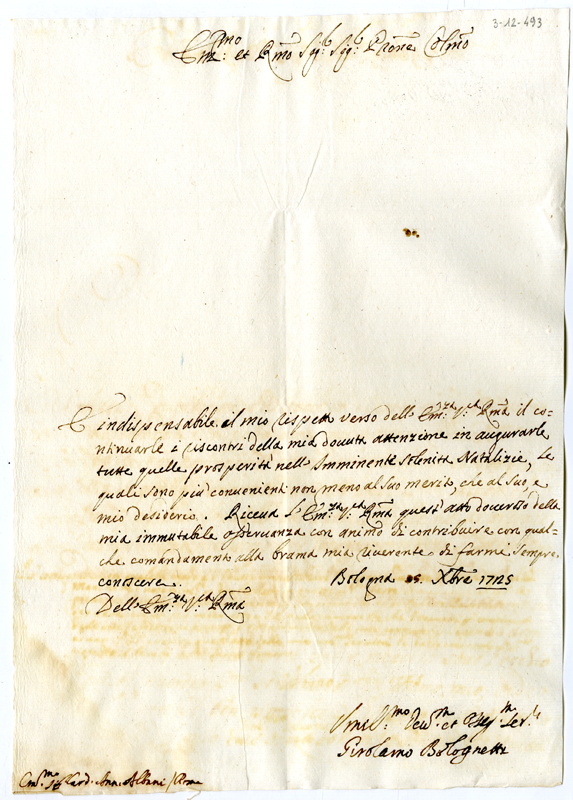 3-12-493
Em:mo et Rmo Sigr: Sigr: Prone Colmo
È indispensabile al mio rispetto verso dell'Em:za V:ra Rma il co=
ntinuarle i riscontri della mia dovuta attenzione in augurarle
tutte quelle prosperità nell'Imminente Solenità Natalizie, le
quali sono più convenienti non meno al Suo merito, che al Suo, e
mio desiderio. Riceva l'Em:za V:ra Rma quest'atto doveroso della
mia immutabile osservanza con animo di contribuire con qual=
che comandamento alla brama mia riverente di farme sempre
conoscere. Bologna 15. Xbre 1725
Dell'Em:za V:ra Rma
Umil:mo Dev:mo et Obseq:mo Ser:
Girolamo Bolognetti
Em:mo Sig Card. Ann. Albani / Roma